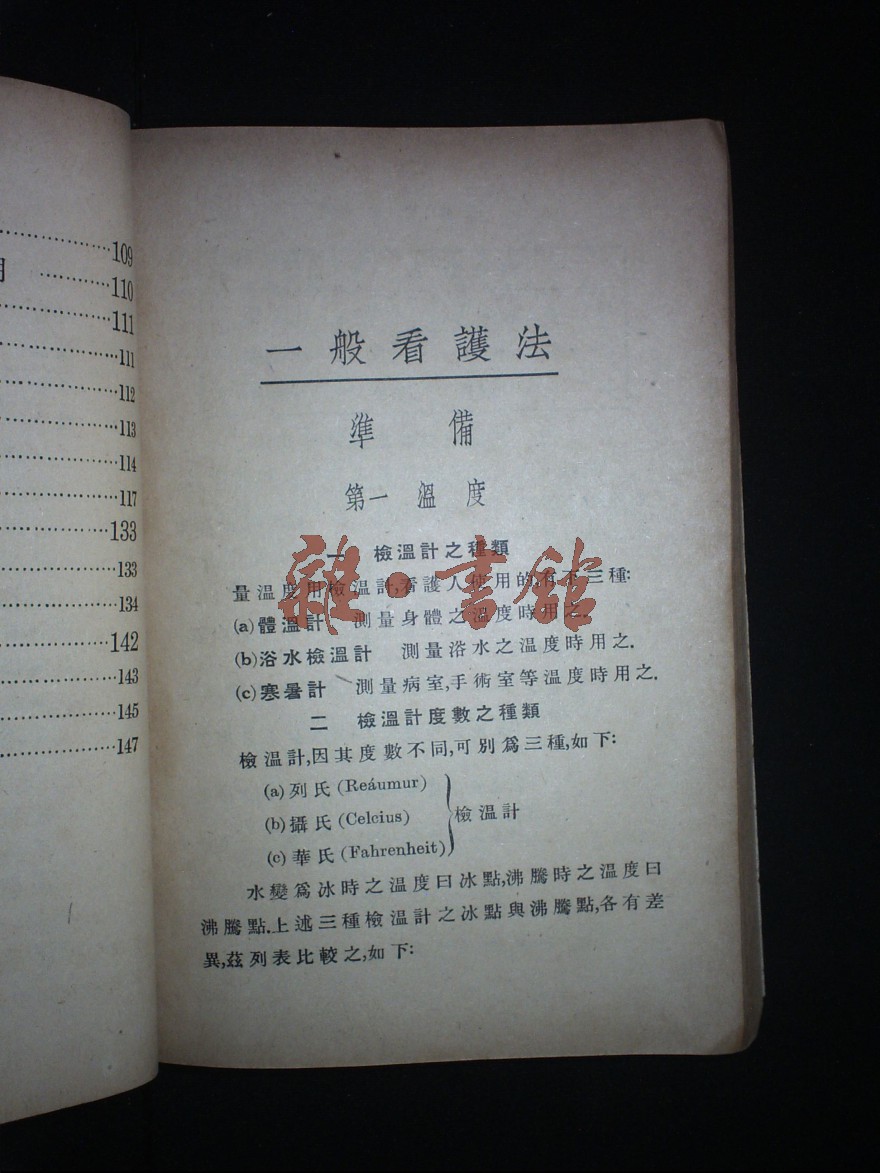 109
110
111
111
112
113
114
117
133
133
134
142
143
145
147
一般看護法
準備
第一 溫度
一 檢溫計之種類
量溫度用檢溫計,看護人使用的,有下三種:
(a)體溫計 測量身體之溫度時用之.
(b)浴水檢溫計 測量浴水之溫度時用之.
(c)寒暑計 測量病室,手術室等溫度時用之.
二 檢溫計度數之種類
檢溫計,因其度數不同,可別爲三種,如下:
(a)列氏(Reáumur)
(b)攝氏(Celcius)
(c)華氏(Fahrenheit)
檢溫計
水變爲冰時之溫度曰冰點,沸騰時之溫度曰
沸騰點.上述三種檢溫計之冰點與沸騰點,各有差
異,茲列表比較之,如下:
雜·書館